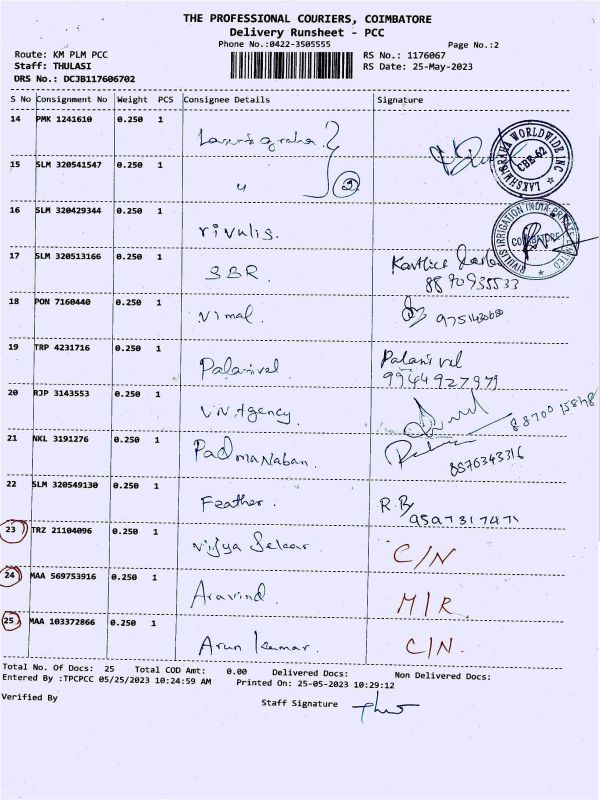 THE PROFESSIONAL COURIERS, COIMBATORE
Delivery Runsheet - PCC
Phone No.:0422-3505555 Page No.:2
Route: KM PLM PCC RS No.: 1176067
Staff: THULASI RS Date: 25-May-2023
DRS No.: DCJB117606702
S No Consignment No Weight PCS Consignee Details Signature
14 PMK 1241610 0.250 1
LAKSHMIGRAHA WORLDWIDE INC
CBE-62
15 SLM 320541547 0.250 1 " 2
16 SLM 320429344 0.250 1 rivulis.
RIVULIS IRRIGATION INDIA PRIVATE LIMITED
COIMBATORE
17 SLM 320513166 0.250 1 SBR
8890935533
18 PON 7160440 0.250 1 Vimal.
19 TRP 4231716 0.250 1 Palanivel. Palanivel
9944927979
20 RJP 3143553 0.250 1 V.N.Agency.
21 NKL 3191276 0.250 1 Padmanaban.
8876343316
22 SLM 320549130 0.250 1 Feather. R.B
9597317471
23 TRZ 21104096 0.250 1 Vijya Sekar. C/N
24 MAA 569753916 0.250 1 Aravind. M/R.
25 MAA 103372866 0.250 1 Arun kumar. C/N.
Total No. Of Docs: 25 Total COD Amt: 0.00 Delivered Docs: Non Delivered Docs:
Entered By :TPCPCC 05/25/2023 10:24:59 AM Printed On: 25-05-2023 10:29:12
Verified By Staff Signature